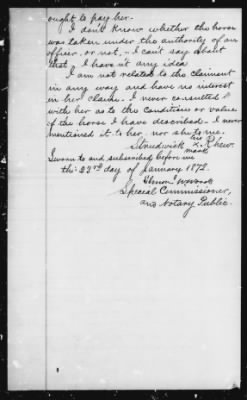 ought to pay her.
I don't know whether the horse
was taken under the authority of an
officer or not, I can't say about
that I have it any idea
I am not related to the claimant
in any way and have no interest
in her claim. I never consulted
with her as to the condition or value
of the horse I have described. I never
mentioned it to her nor she to me.
his
Strudwick x Rhew.
mark
Sworn to and subscribed before me
this 23rd day of January 1872.
Special Commissioner,
and Notary Public.